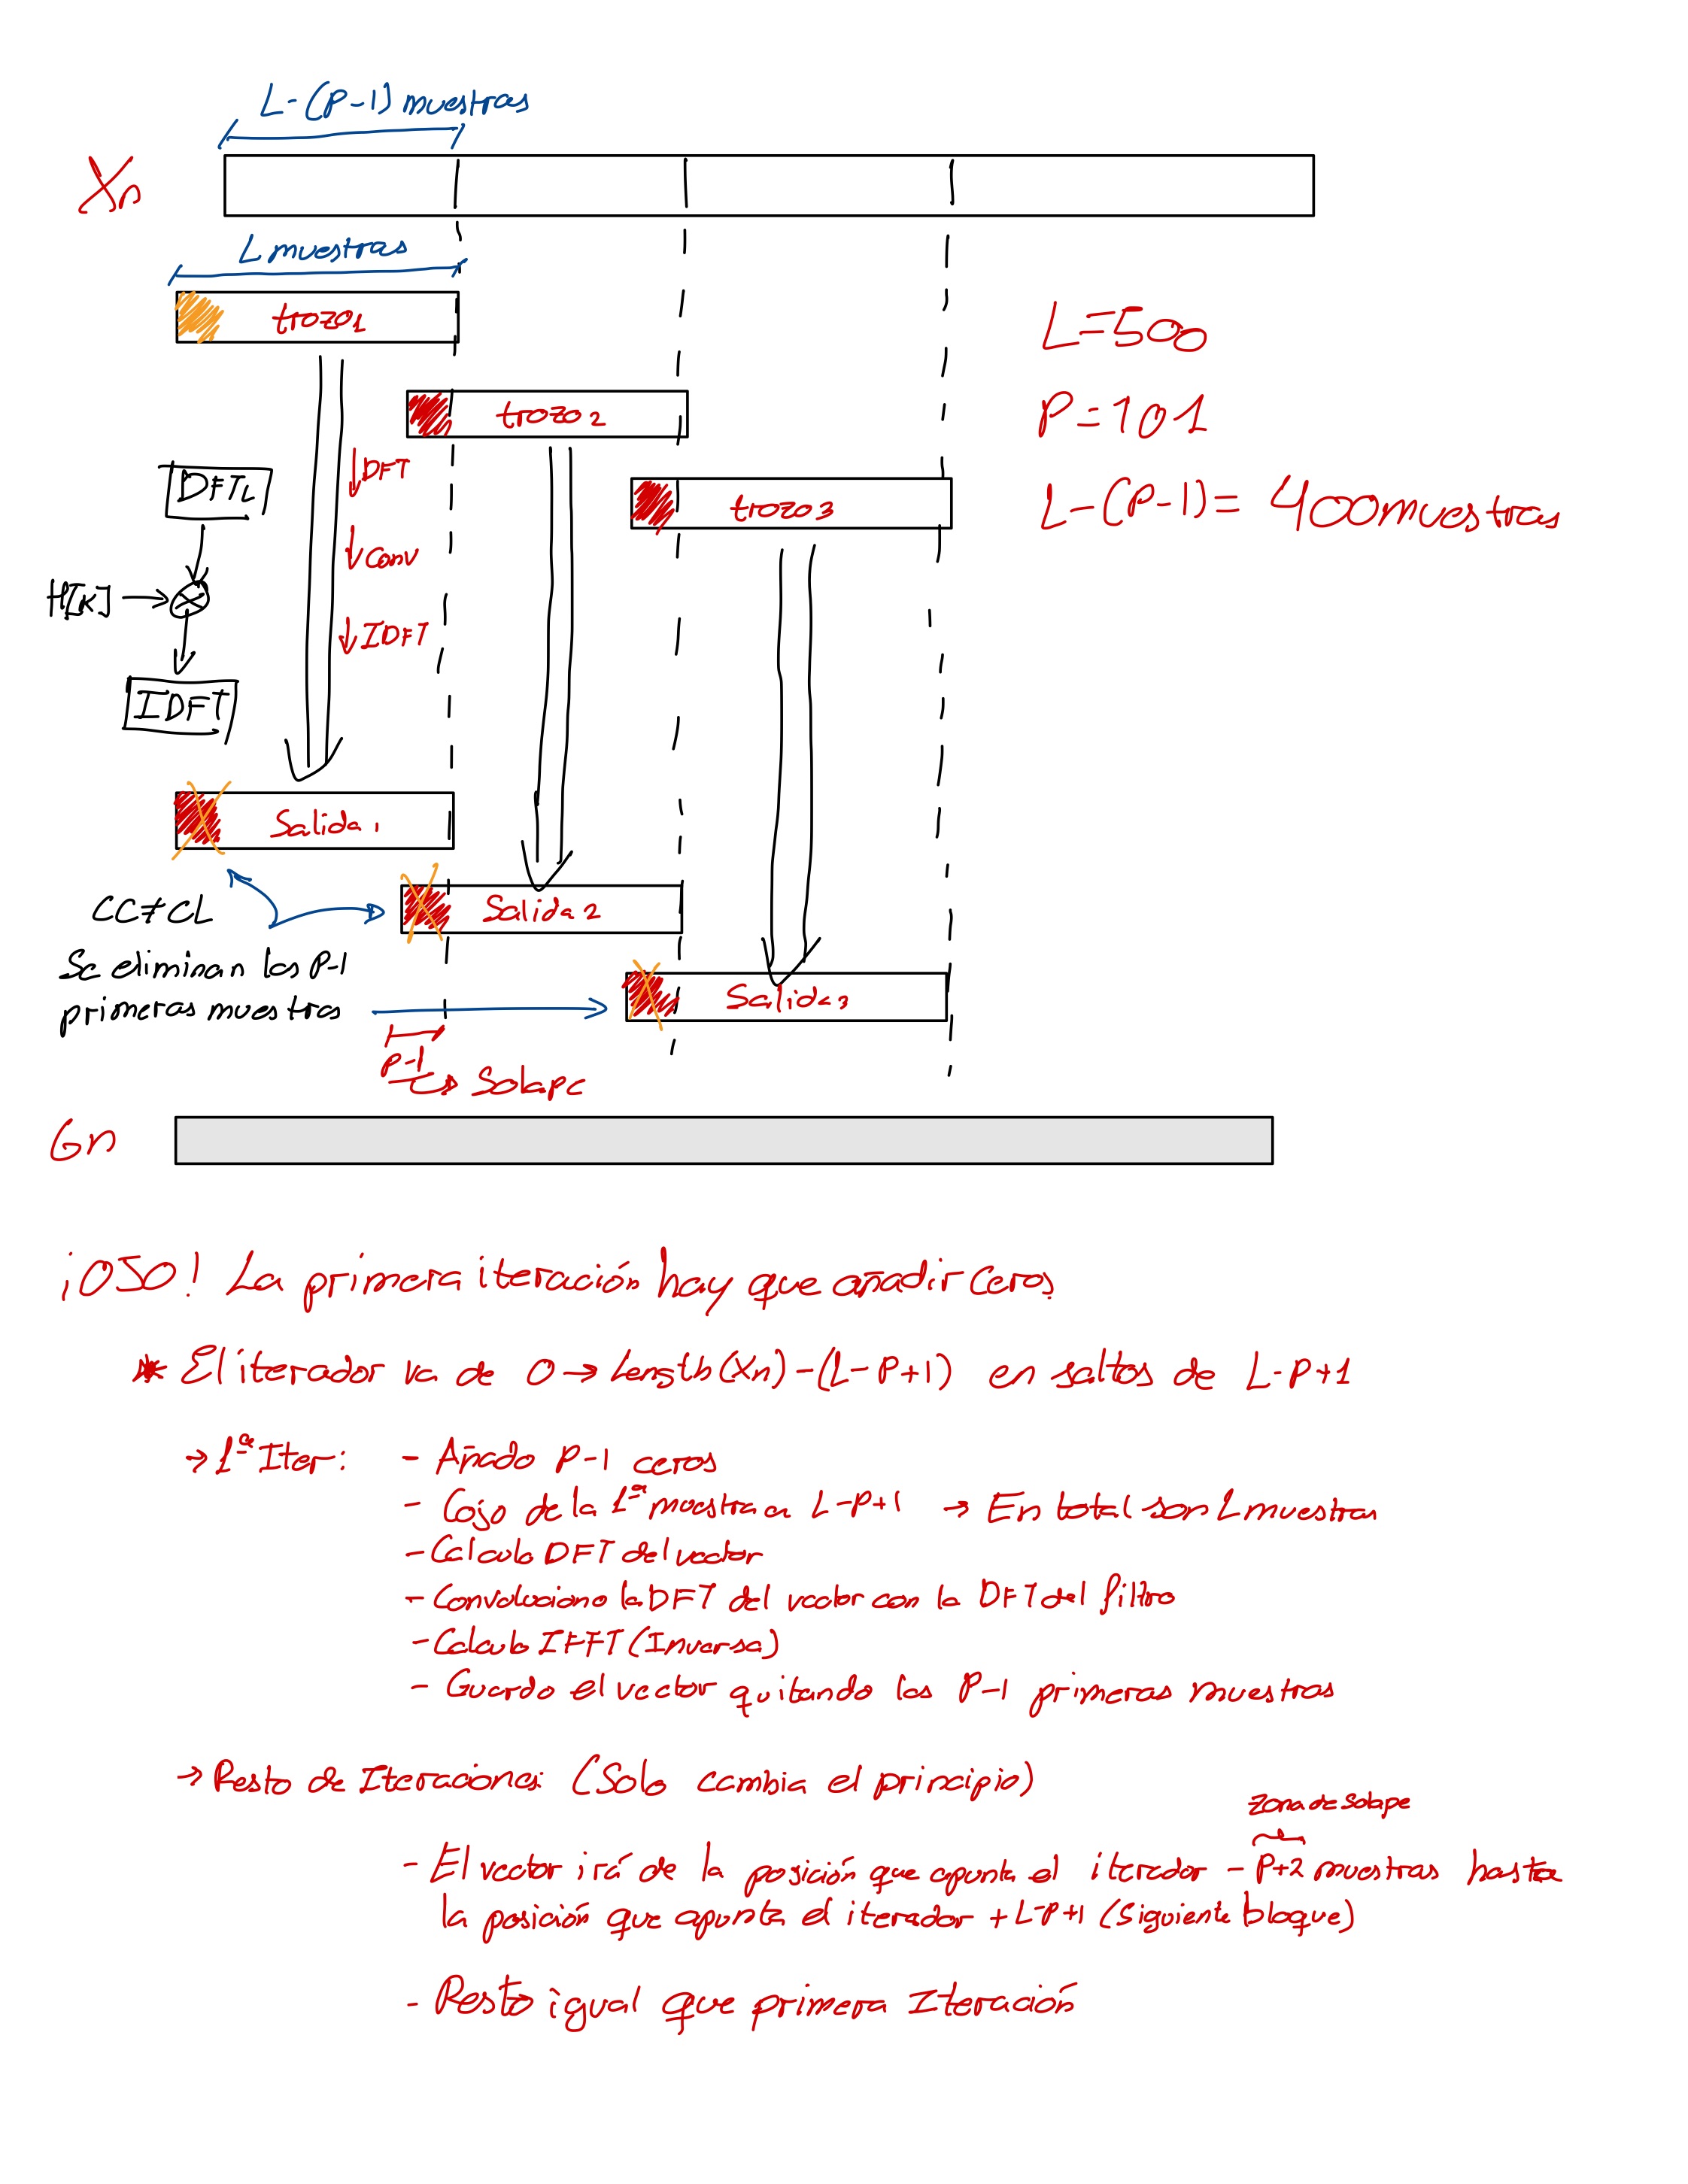 L-(P-1) muestras
Xn
L muestras
trozo1
L=500
trozo2
P=101
DFT
trozo3
L-(P-1)= 400muestras
DFTL
Conv
H[K]
IDFT
IDFT
Salida1
CC≠CL
Salida2
Se eliminan las P-1
primeras muestras
Salida3
P-1
Solape
Gn
¡OJO! La primera iteración hay que añadir ceros.
* El iterador va de 0 → Length(Xn)-(L-P+1) en saltos de L-P+1
→ 1ª Iter: - Añado P-1 ceros
- Cojo de la 1ª muestra a L-P+1 → En total son L muestras
- Calculo DFT del vector
- Convoluciono la DFT del vector con la DFT del filtro
- Calculo IFFT (Inversa)
- Guardo el vector quitando las P-1 primeras muestras
→ Resto de Iteraciones (Solo cambia el principio)
zona de solape
- El vector irá de la posición que apunta el iterador - P+2 muestras hasta
la posición que apunta el iterador + L-P+1 (Siguiente bloque)
- Resto igual que primera Iteración